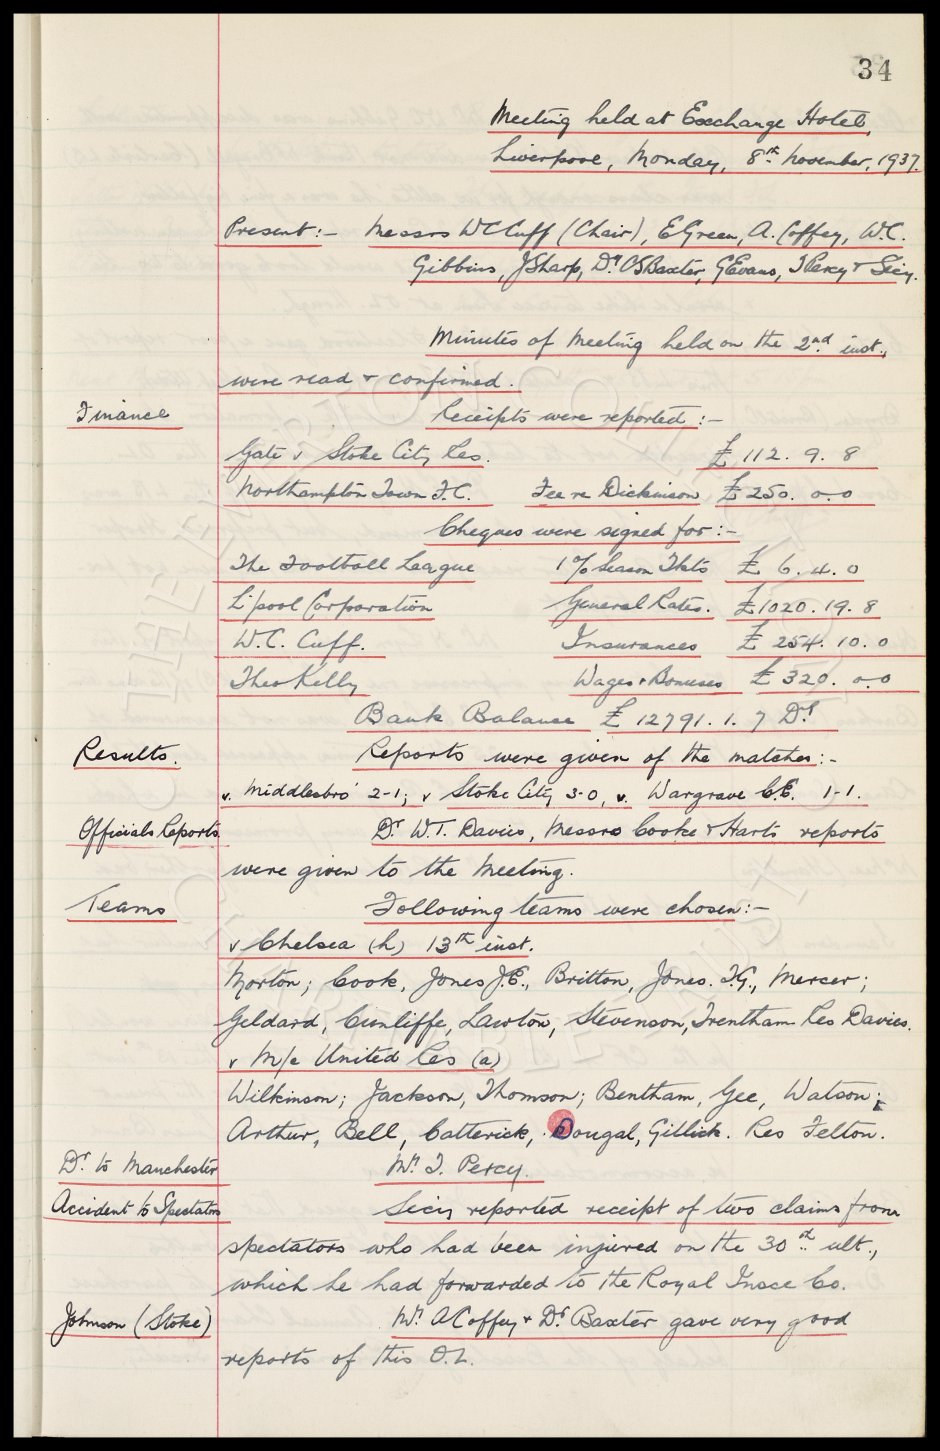 34
Meeting held at Exchange Hotel,
Liverpool, Monday, 8th November, 1937.
Present:- Messrs W C Cuff (Chair), E Green, A. Coffey, W.C.
Gibbins, J Sharp, Dr. C S Baxter, G Evans, T Percy & Secy.
Minutes of Meeting held on the 2nd inst.,
were read & confirmed.
Finance Receipts were reported:-
Gate v Stoke City Res. £ 112. 9. 8
Northampton Town F.C. Fee re Dickinson £ 250. 0-0
Cheques were signed for:-
The Football League 1% Season Tkts £ 6. 4. 0
L'pool Corporation General Rates. £1020. 19. 8
W.C. Cuff. Insurances £ 254. 10. 0
Theo Kelly Wages & Bonuses £ 320. 0-0
Bank Balance £ 12791. 1. 7 Dr
Results. Reports were given of the matches:-
v. Middlesbro' 2-1; v Stoke City 3-0, v. Wargrave C.E. 1-1.
Officials Reports. Dr. W.T. Davies, Messrs Cooke & Harts reports
were given to the Meeting.
Teams Following teams were chosen:-
v Chelsea (h) 13th inst.
Morton; Cook, Jones J.E., Britton, Jones. T.G., Mercer;
Geldard, Cunliffe, Lawton, Stevenson, Trentham. Res Davies.
v M/c United Res (a)
Wilkinson; Jackson, Thomson; Bentham, Gee, Watson;
Arthur, Bell, Catterick, Dougal, Gillick. Res Felton.
Dr. to Manchester Mr. T. Percy.
Accident to Spectators Secy reported receipt of two claims from
spectators who had been injured on the 30th ult.,
which he had forwarded to the Royal Insce Co.
Johnson (Stoke) Mr. A Coffey & Dr. Baxter gave very good
reports of this O.L.